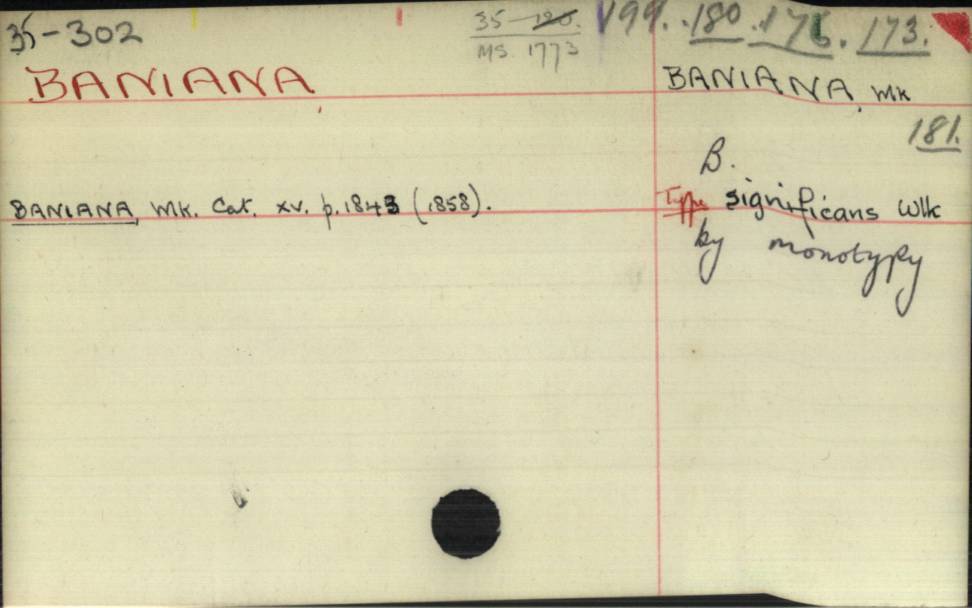 35-302
35-120.
MS. 1773
199. 180. 176. 173.
BANIANA
BANIANA, Wlk
181.
B.
BANIANA, Wlk. Cat. XV. p. 1843 (1858).
Type significans Wlk
by monotypy